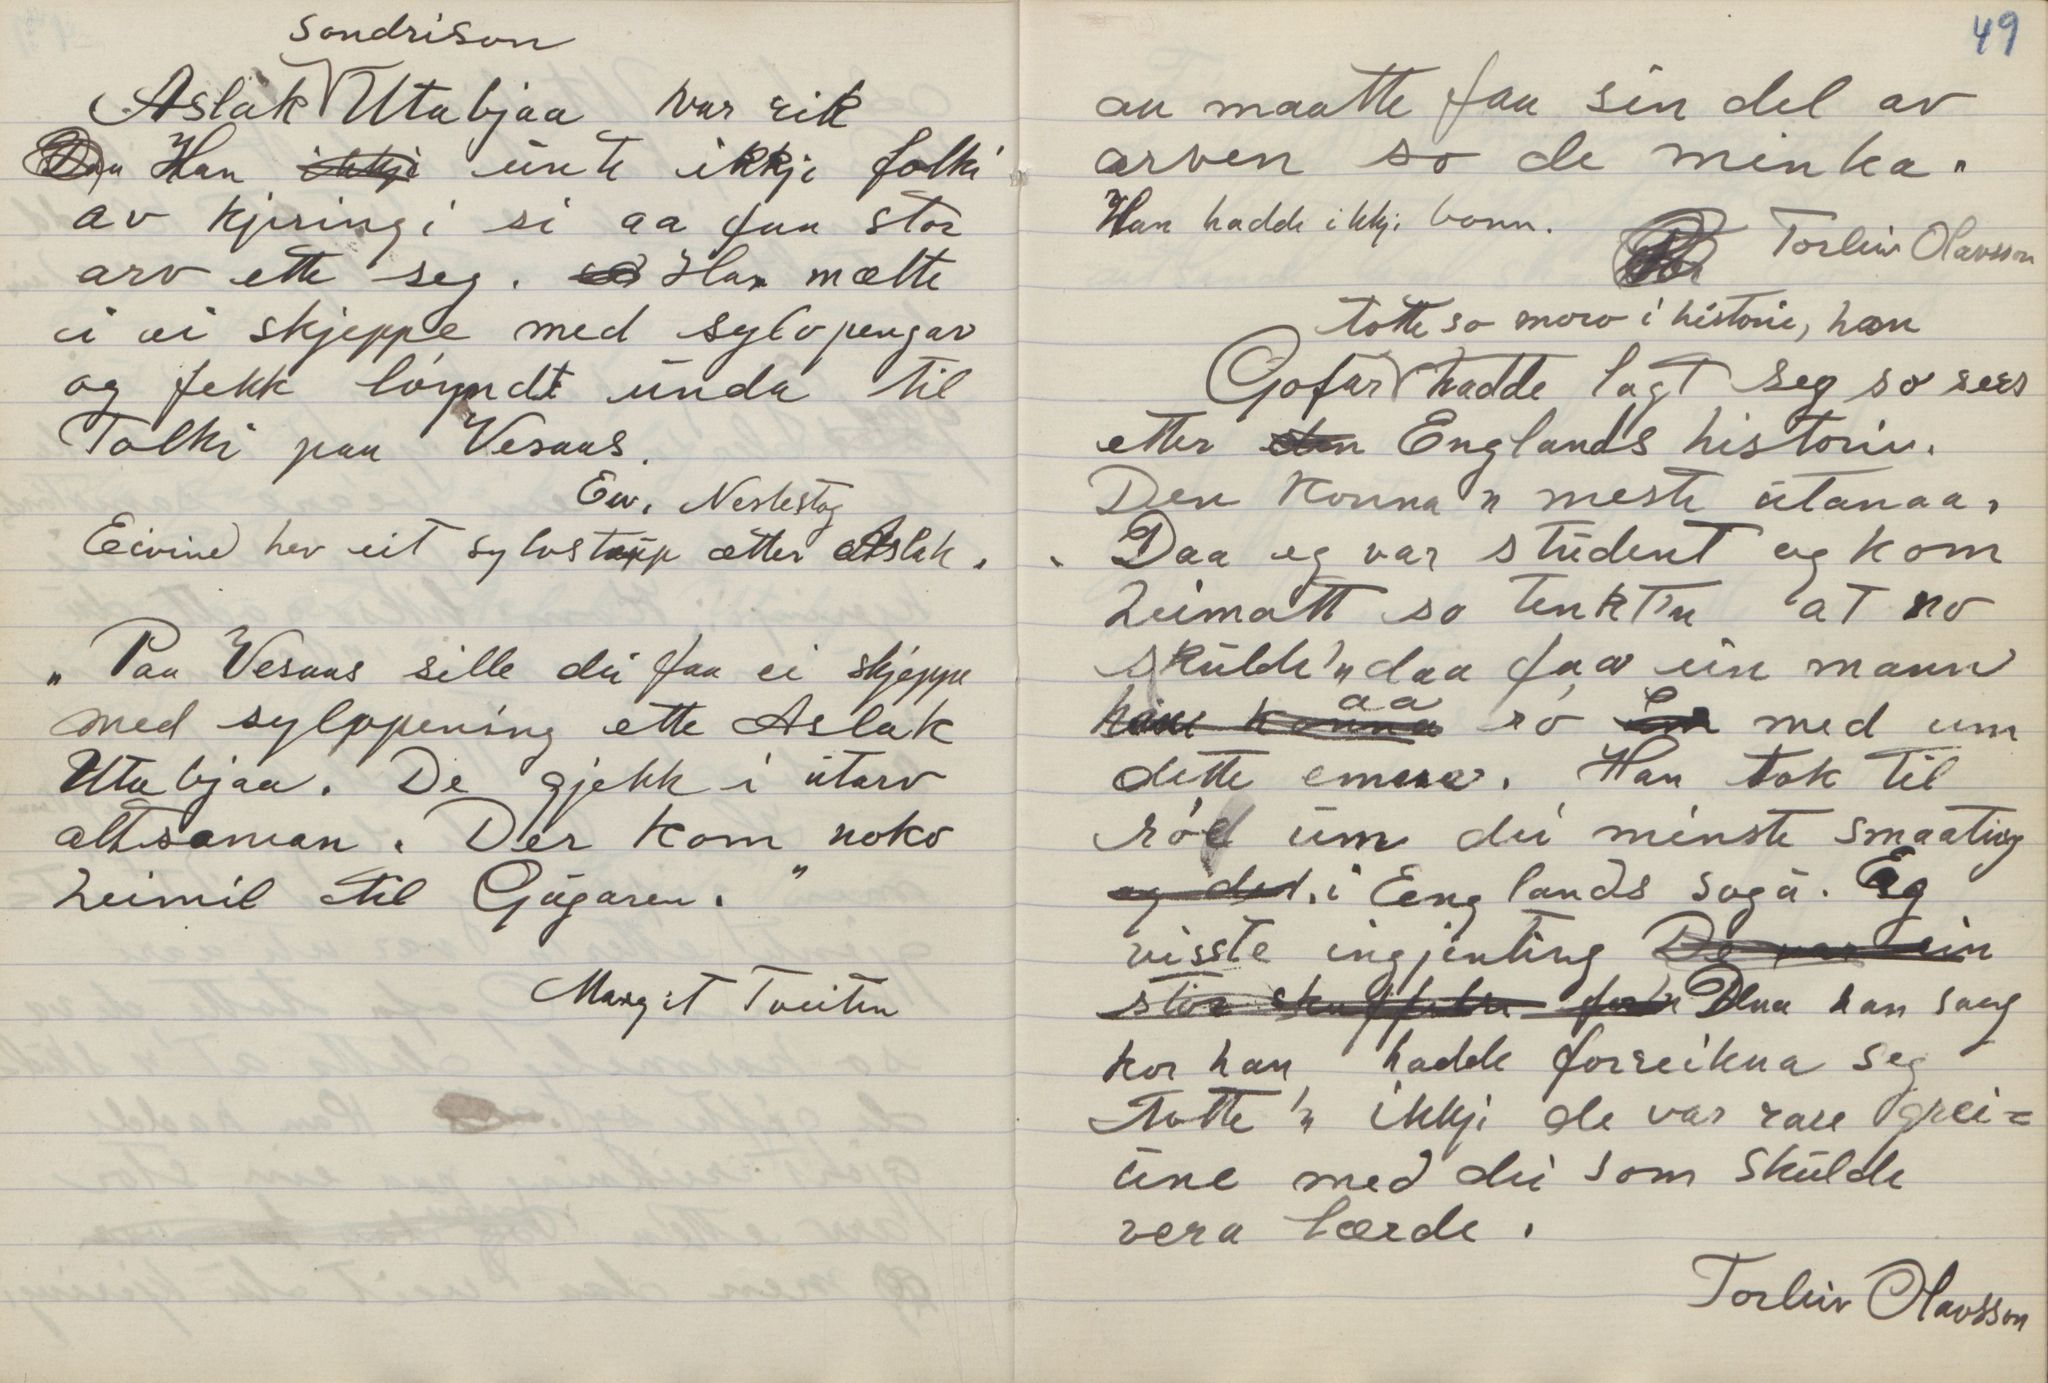 Sondrison
Aslak Utabjaa var rik
Han ikkji unte ikkje folki
av kjeringi si aa faa stor
arv ette seg. so Han mætte
i ei skjeppe med sylvpengar
og fekk løyndt unda til
Folki paa Vesaas.
Eiv. Neslestog
Eivind hev eit sylvstaup ætter Aslak.
„Paa Vesaas sille du faa ei skjeppe
med sylvpening ette Aslak
Utabjaa. De gjekk i utarv
altsaman. Der kom noko
heimil til Gugaren."
Margit Tveiten
49
an maatte faa sin del av
arven so de minka.
Han hadde ikkji bonn.
Torleiv Olavsson
totte so moro i historie, han
Gofar hadde lagt seg so
etter den Englands historie.
Den konna 'n meste utanaa.
Daa eg var student og kom
heimatt so tenkt'n at no
skulde 'n daa faa ein mann
han konna aa rø med um
dette emne. Han tok til
rø um dei minste smaating
og det i Englands soga. Eg
visste ingjenting De var ein
stor skuffelse for'n Daa han saag
kor han hadde forreikna seg
totte 'n ikkji de var rare grei=
une med dei som skulde
vera lærde.
Torleiv Olavsson